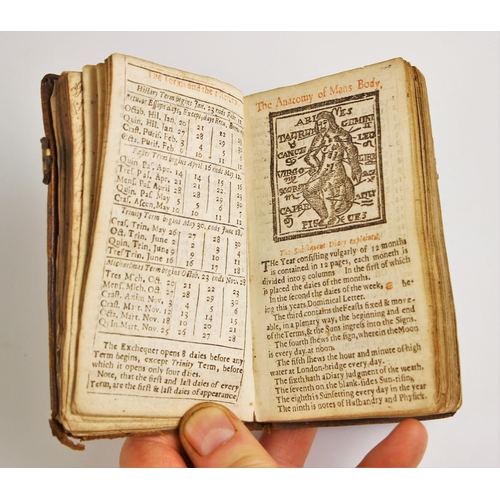 The Terms and their Returns
Hillary Term begins Jan. 23 ends Feb. 12
Octab. Hil. Jan. 20 21 22
Quin. Hil. Jan. 27 28 29
Craft. Purif. Feb. 3 4
Purif. Feb. 10 11 12
Easter Term begins April 16 ends May 12
Quin. Pas. Apr. 14 14 15
Tres. Pas. April 21 21
Mens. Pas. April 28
Quin. Pas. May 5 5 6
Cras. Ascen. May 10 11 12
Trinity Term begins May 30. ends June 18.
Cras. Trin. May 26 27 28 30
Oct. Trin. June 2 3 4
Quin. Trin. June 9 10 11
Tres. Trin. June 16 17 18
Michaelmas Term begins Octob. 23 ends Nov. 28
Tres Mich. Oct. 20 21 22 23
Mens. Mich. Oct.
Craft. Anim. Nov. 3
Craft. Mart. Nov. 12
Oct. Mart. Nov. 18
Quin. Mart. Nov. 25 27 28
The Exchequer opens 8 daies before any
Term begins, except Trinity Term, before
which it opens only four daies.
Note, that the first and last daies of every
Term, are the first & last daies of appearance
The Anatomy of Mans Body,
ARI ES
TAURUS GEMINI
CANCE LEO
VIRGO
CAPRI AQU
PISC ES
The subsequent Diary explained.
THe Year consisting vulgarly of 12 months
is contained in 12 pages, each moneth is
divided into 9 columns In the first of which
is placed the daies of the months.
In the second the daies of the week, G be-
ing this years Dominical Letter.
The third contains the Feasts fixed & move-
able, in a plenary way, the beginning and end
of the Terms, & the Suns ingress into the Signs.
The fourth shews the sign, wherein the Moon
is every day at noon.
The fifth shews the hour and minute of high
water at London-bridge every day.
The sixth hath a Diary judgment of the weath.
The seventh on the blank-sides Sun-rising,
The eighth is Sunsetting every day in the year
The ninth is notes of Husbandry and Physick.